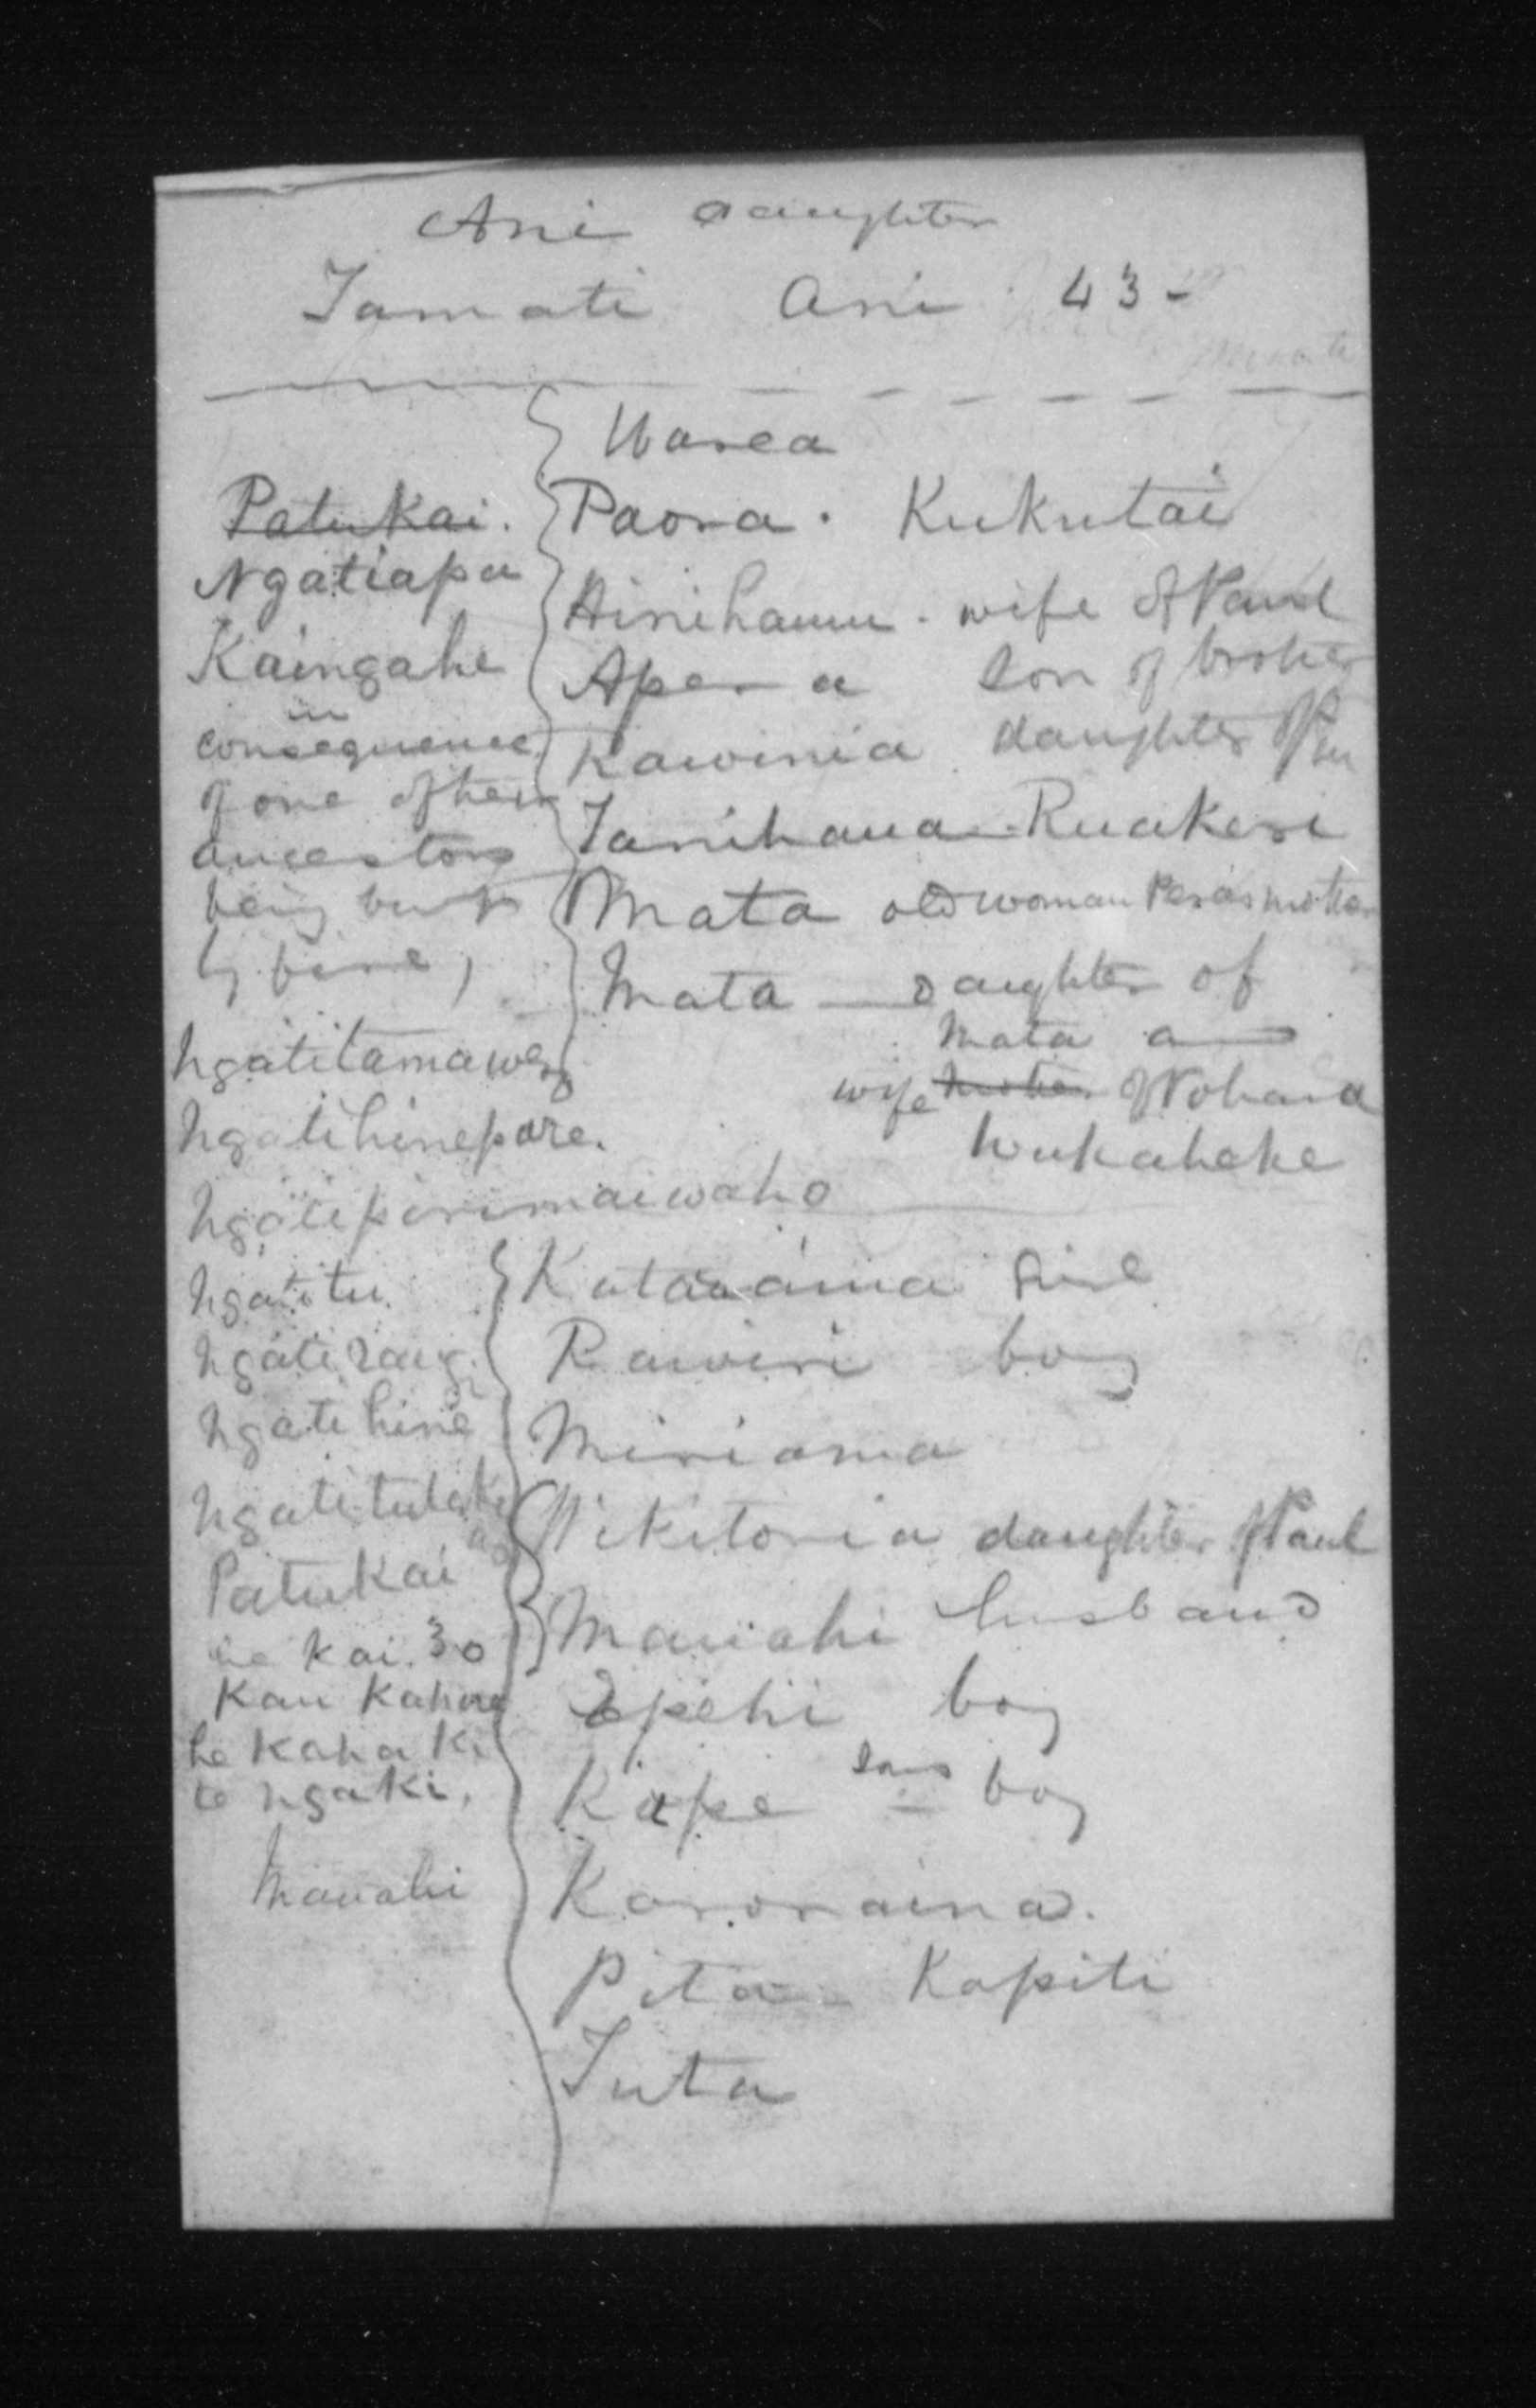 Ani daughter
Tamati Ani 43 -
Warea
Patukai.
Ngatiapa
Kaingahe
in
consequence
of one of their
ancestors
being burnt
by fire,
Ngatitamawera
Ngatihinepare.
Ngatiparimaiwaho
Ngatitu
Ngatirangi
Ngatihine
Ngatitutaki
Patukai
he kai. 30
Kau Kahore
he Kaha ki
te ngaki.
Manahi
Paora. Kukutai
Hinehamu. wife of Paul
Apera son of brother
Rawinia daughter of
Tanihana Ruakere
Mata old woman Peras mother
Mata daughter of
Mata a
wife mother of
Wukaheke
Kataraina
Rawiri boy
Miriama
Wikitoria daughter of Paul
Manahi husband
Epehi boy
Kape boy
Kororaina.
Pita Kapiti
Tuta